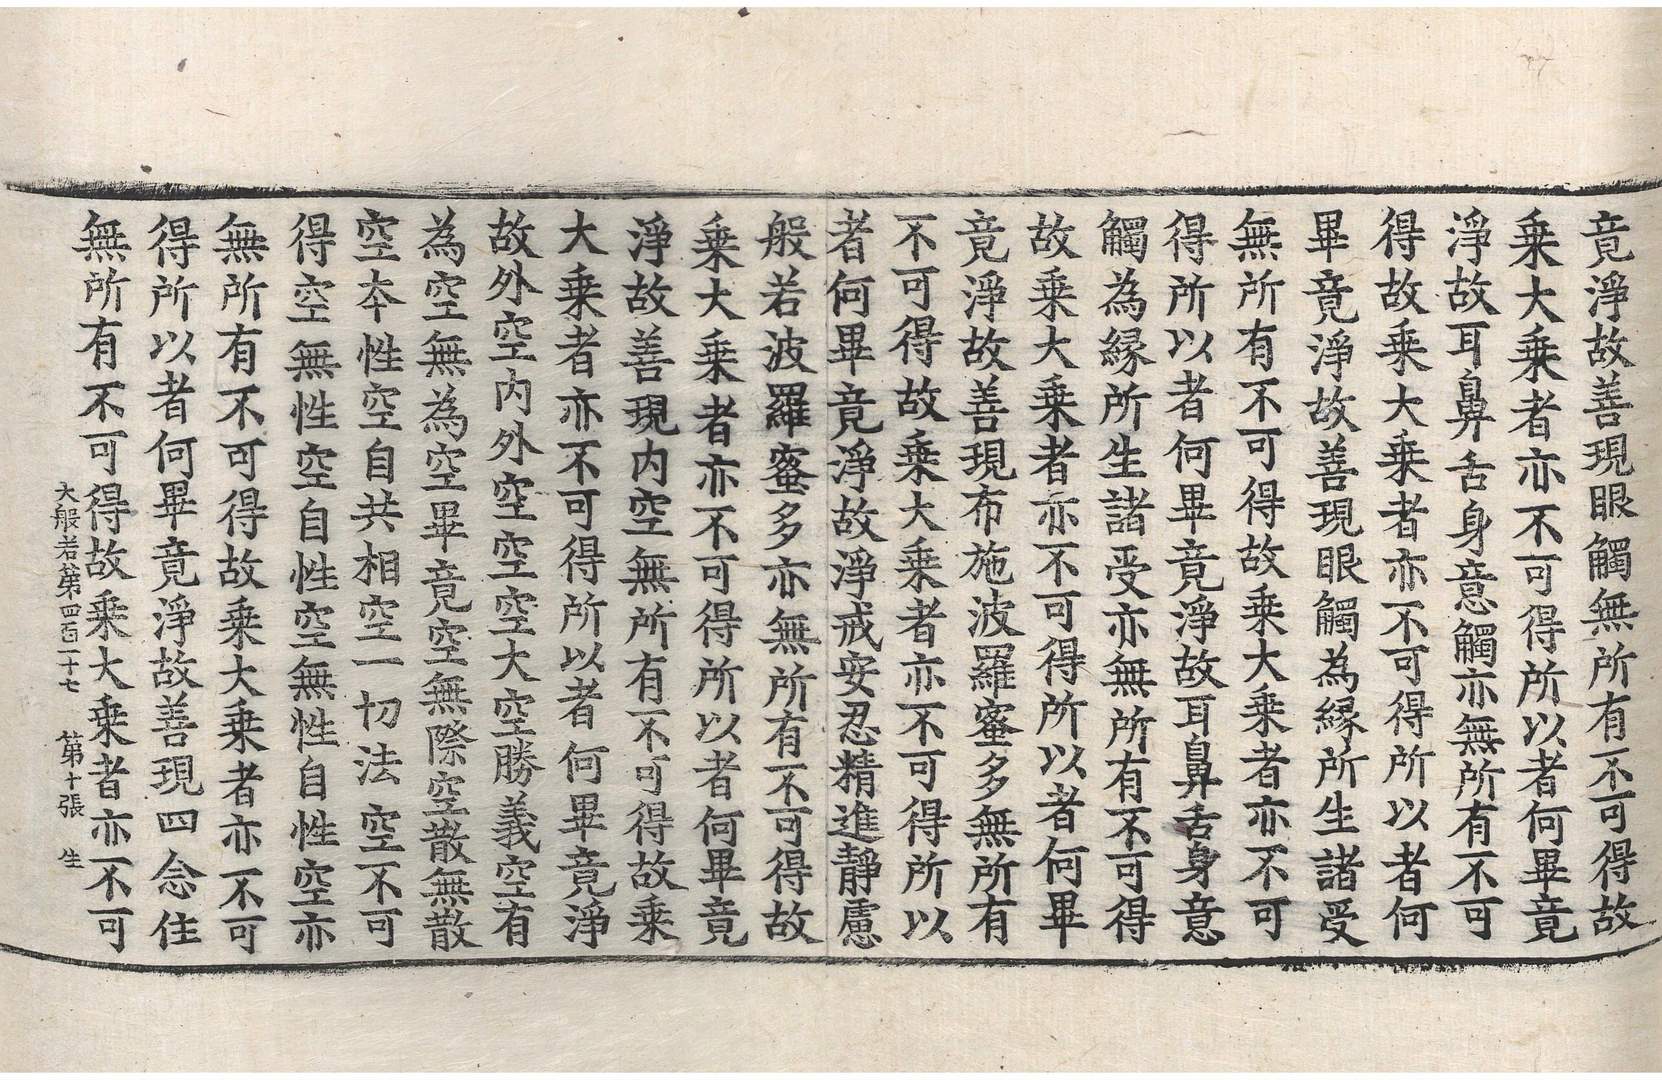 竟淨故善現眼觸無所有不可得故
乘大乘者亦不可得所以者何畢竟
淨故耳鼻舌身意觸亦無所有不可
得故乘大乘者亦不可得所以者何
畢竟淨故善現眼觸為緣所生諸受
無所有不可得故乘大乘者亦不可
得所以者何畢竟淨故耳鼻舌身意
觸為緣所生諸受亦無所有不可得
故乘大乘者亦不可得所以者何畢
竟淨故善現布施波羅蜜多無所有
不可得故乘大乘者亦不可得所以
者何畢竟淨故淨戒安忍精進靜慮
般若波羅蜜多亦無所有不可得故
乘大乘者亦不可得所以者何畢竟
淨故善現內空無所有不可得故乘
大乘者亦不可得所以者何畢竟淨
故外空內外空空空大空勝義空有
為空無為空畢竟空無際空散無散
空本性空自共相空一切法空不可
得空無性空自性空無性自性空亦
無所有不可得故乘大乘者亦不可
得所以者何畢竟淨故善現四念住
無所有不可得故乘大乘者亦不可
大般若第四百一十七 第十張 生